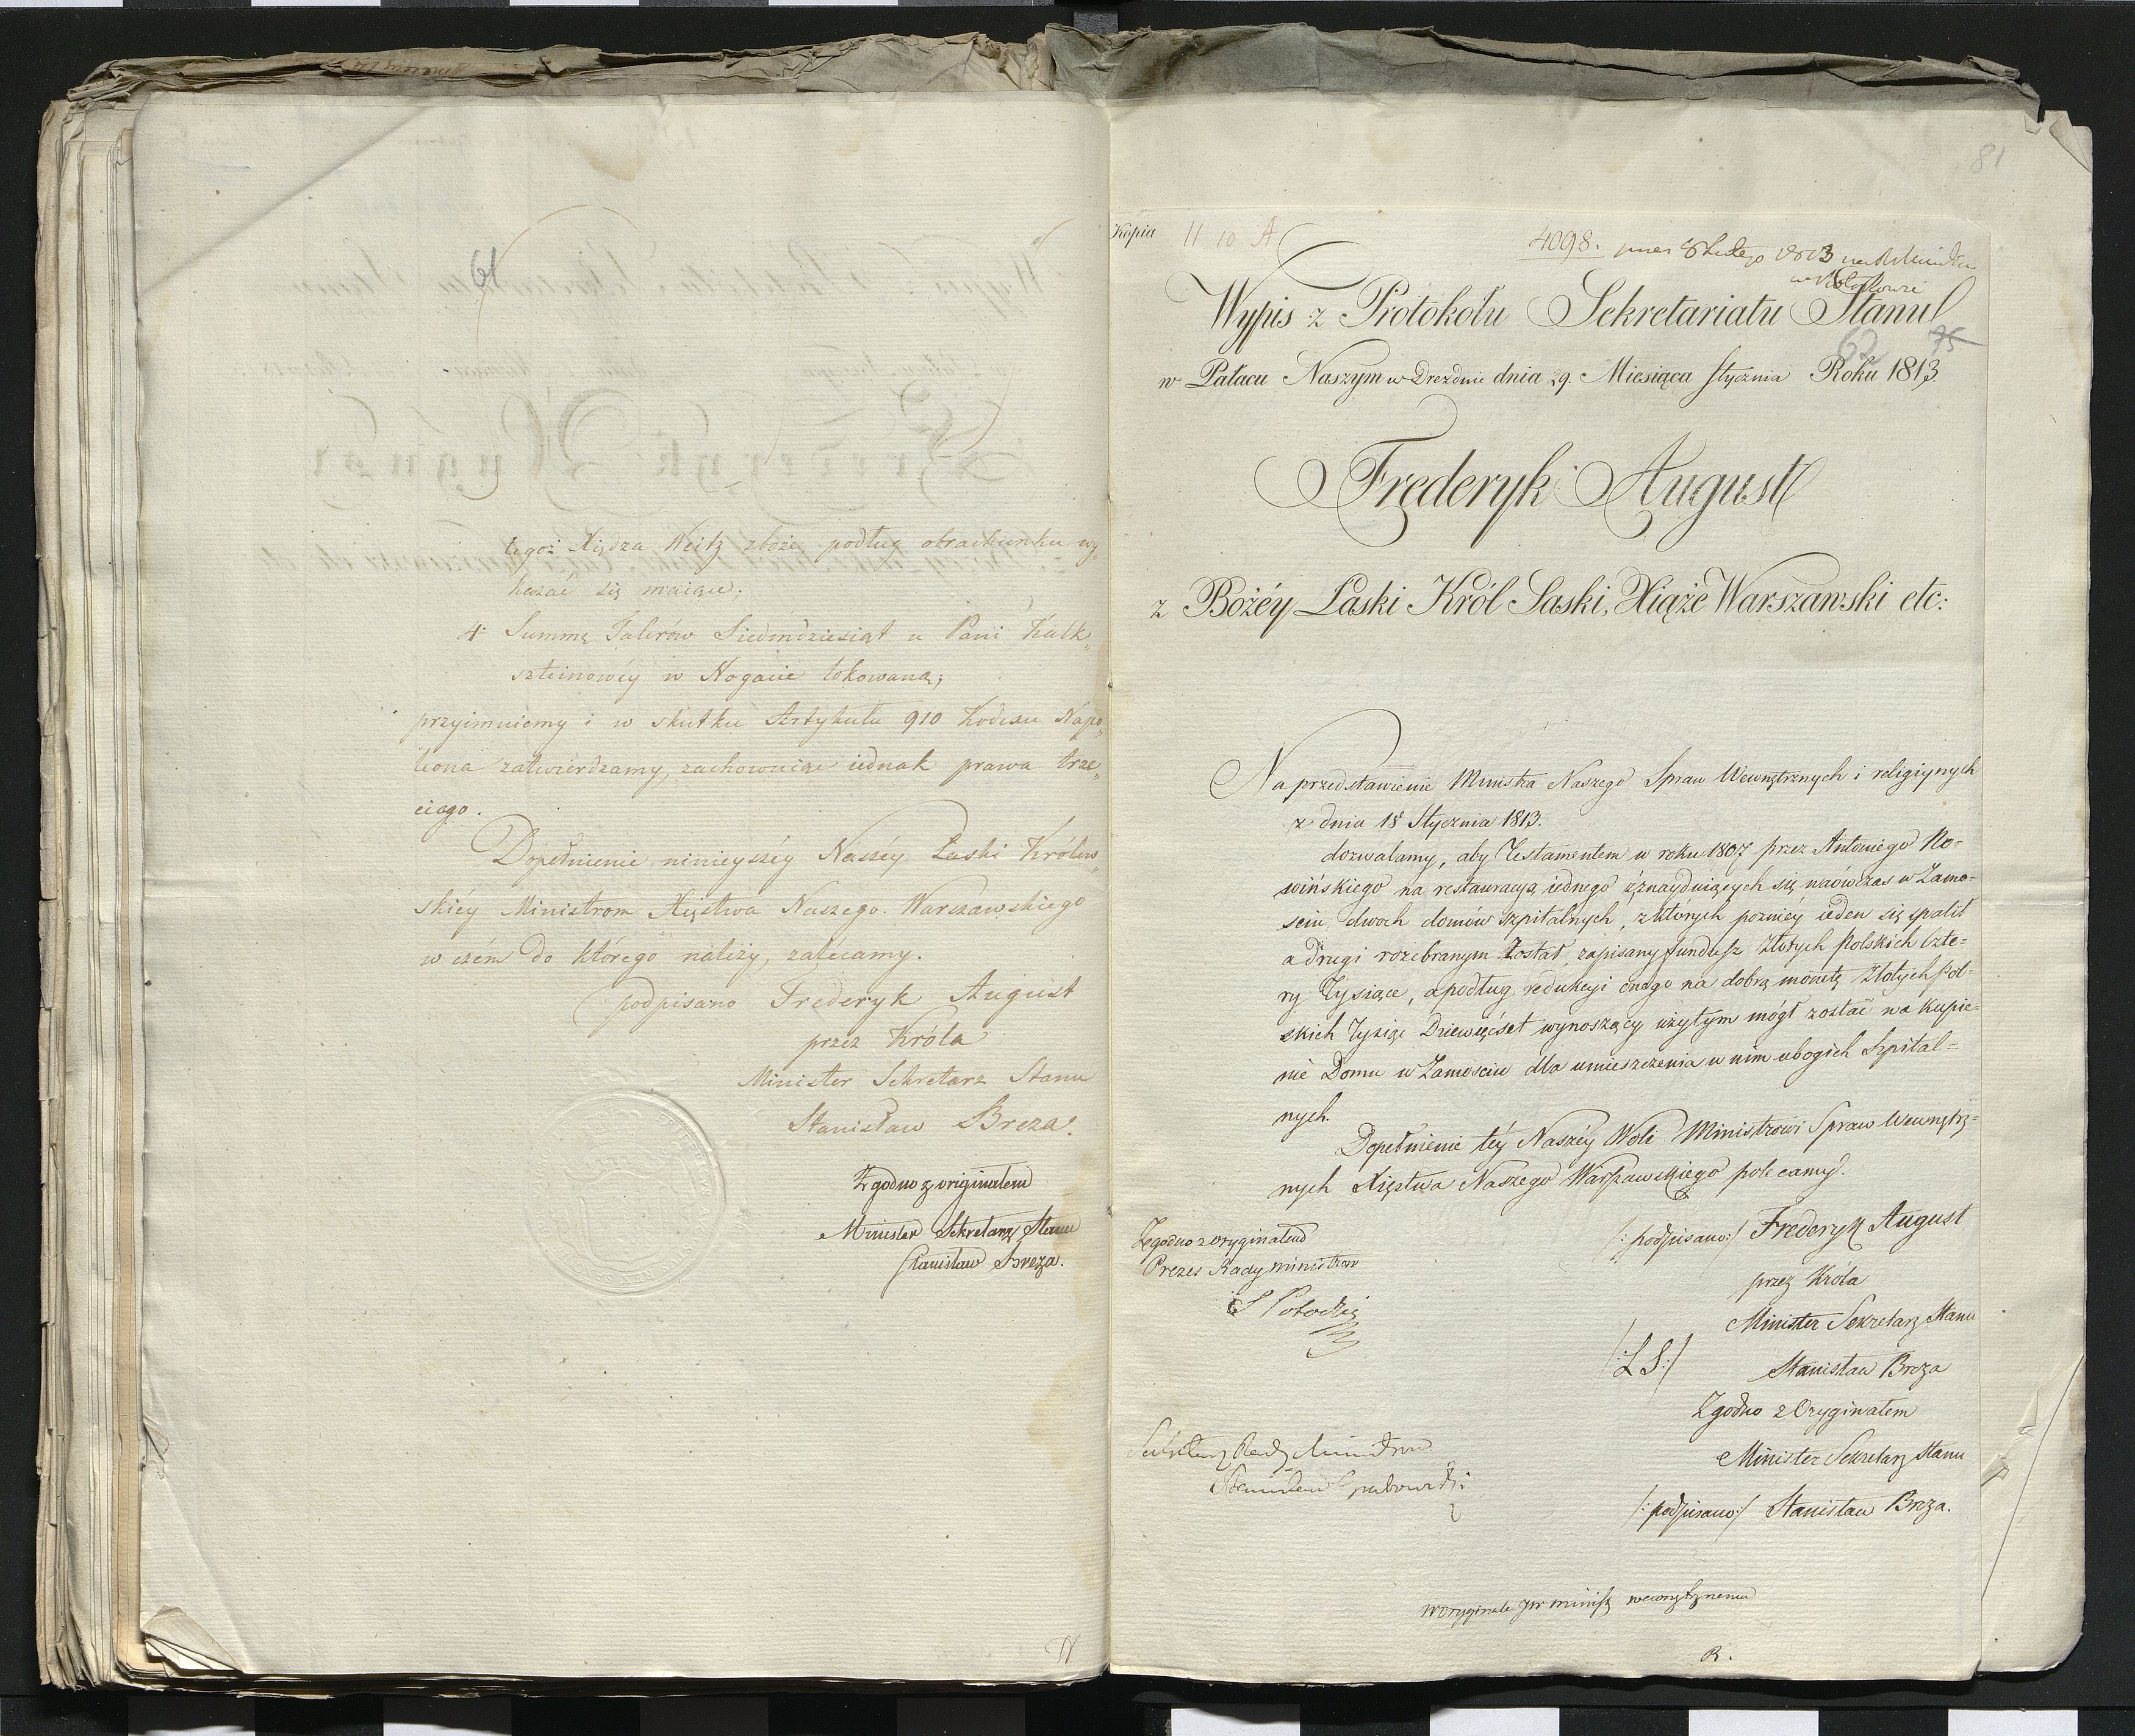 61
tegoż Xiędza Weitz zboże, podług obrachunku wy„
kazać się maiące;
4. Summę Talerów Siedmdziesiąt u Pani Kalk„
szteinowéy w Nogacie lokowaną;
przyimuiemy i w skutku Artykułu 910 Kodexu Napo„
leona zatwierdzamy, zachowuiąc iednak prawa trze„
ciego.
Dopełnienie ninieyszéy Naszéy Łaski Królew„
skiéy Ministrom Xięstwa Naszego Warszawskiego
w czém do którego należy, zalécamy.
podpisano Frederyk August
przez Króla
Minister Sekretarz Stanu
Stanisław Breza.
Zgodno z originałem
Minister Sekretarz Stanu
Stanisław Breza.
81
Kopia 11 10 A
4098. 8 Lutego 1813
Wypis z Protokołu Sekretariatu Stanu
62 75
w Pałacu Naszym w Dreźdnie dnia 29. Miesiąca Stycznia Roku 1813.
Frederyk August
z Bożéy Łaski Król Saski, Xiąże Warszawski etc:
Na przedstawienie Ministra Naszego Spraw Wewnętrznych i religiynych
z dnia 18 Stycznia 1813.
dozwalamy, aby Testamentem w roku 1807 przez Antoniego No=
wińskiego na restauracyą iednego z znayduiących się naówczas w Zamo=
sciu dwoch domów szpitalnych, z których pozniéy ieden się spalił
a drugi rozebranym został, zapisany fundusz Złotych Polskich Czte=
ry Tysiące, a podług redukcyi onego na dobrą monetę Złotych Pol=
skich Tysiąc Dziewięćset wynoszący użytym mógł zostać na kupie=
nie Domu w Zamosciu dla umieszczenia w nim ubogich Szpital=
nych.
Dopełnienie téy Naszéy Woli Ministrowi Spraw Wewnętrz=
nych Xięstwa Naszego Warszawskiego polecamy.
/: podpisano:/ Frederyk August
Zgodno z oryginałem
Prezes Rady ministrow
przez Króla
S Potocki
Minister Sekretarz Stanu
/: L S :/
Stanisław Breza
Zgodno z Oryginałem
Sekretarz Rady Ministrow
Minister Sekretarz Stanu
/: podpisano:/ Stanisław Breza.
W oryginale JW minist wewnętrznemu
R.